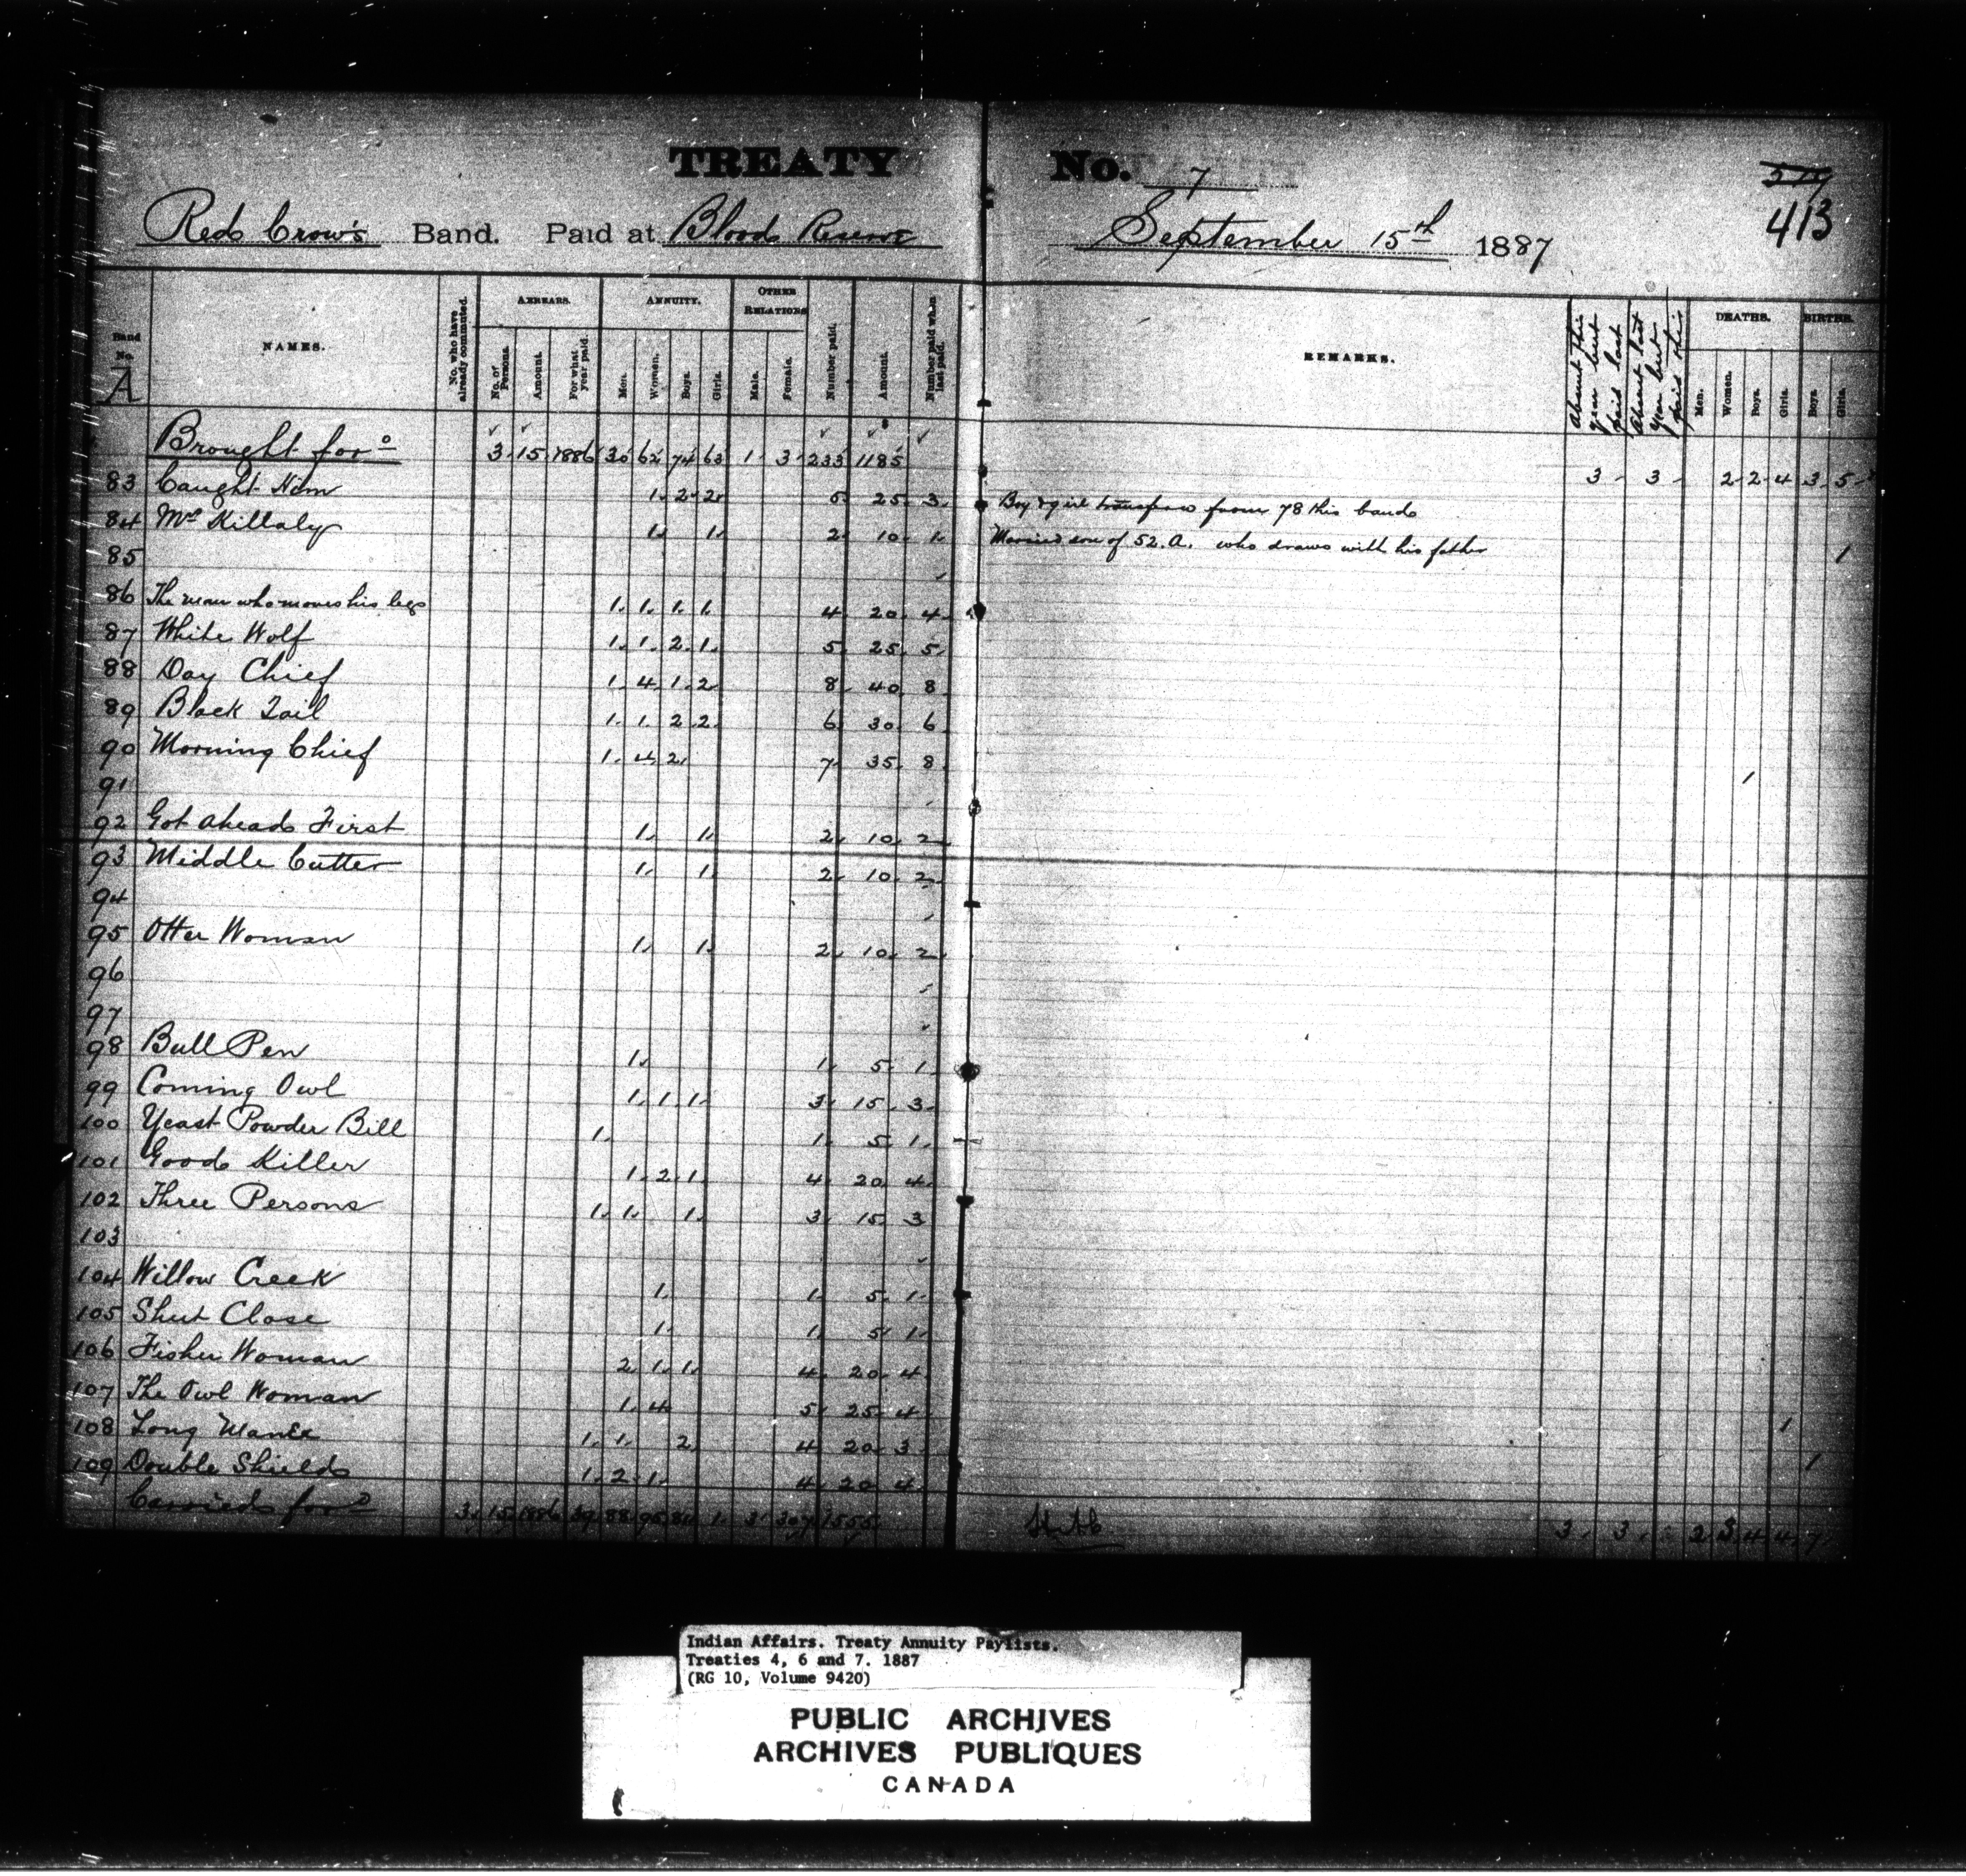 TREATY No. 7
577
413
Red Crow's Band. Paid at Blood Reserve September 15th 1887
Band No. A
NAMES.
No. who have already commuted.
ARREARS.
No. of Persons.
Amount.
For what year paid.
ANNUITY.
Men.
Women.
Boys.
Girls.
OTHER RELATIONS
Male.
Female.
Number paid.
Amount.
Number paid when last paid.
REMARKS.
Absent this year but paid last
Absent last year but paid this
DEATHS.
Men.
Women.
Boys.
Girls.
BIRTHS.
Boys
Girls.
Brought ford 3 15 1886 30 62 74 63 1 3 233 1185 3 3 2 2 4 3 5
83 Caught Him 1 2 2 5 25 3 Boy & girl transfered from 78 this band
84 Mrs Killaly 1 1 2 10 1 Married son of 52.A. who draws with his father 1
85
86 The man who moves his legs 1 1 1 1 4 20 4
87 White Wolf 1 1 2 1 5 25 5
88 Day Chief 1 4 1 2 8 40 8
89 Black Tail 1 1 2 2 6 30 6
90 Morning Chief 1 4 2 7 35 8 1
91
92 Got ahead First 1 1 2 10 2
93 Middle Cutter 1 1 2 10 2
94
95 Otter Woman 1 1 2 10 2
96
97
98 Bull Pen 1 1 5 1
99 Coming Owl 1 1 1 3 15 3
100 Yeast Powder Bill 1 1 5 1
101 Good Killer 1 2 1 4 20 4
102 Three Persons 1 1 1 3 15 3
103
104 Willow Creek 1 1 5 1
105 Shut Close 1 1 5 1
106 Fisher Woman 2 1 1 4 20 4
107 The Owl Woman 1 4 5 25 4 1
108 Long Mane 1 1 2 4 20 3 1
109 Double Shield 1 2 1 4 20 4
Carried ford 3 15 1886 39 88 95 81 1 3 307 1555 3 3 2 3 4 4 7
Indian Affairs. Treaty Annuity Paylists.
Treaties 4, 6 and 7. 1887
(RG 10, Volume 9420)
PUBLIC ARCHIVES
ARCHIVES PUBLIQUES
CANADA